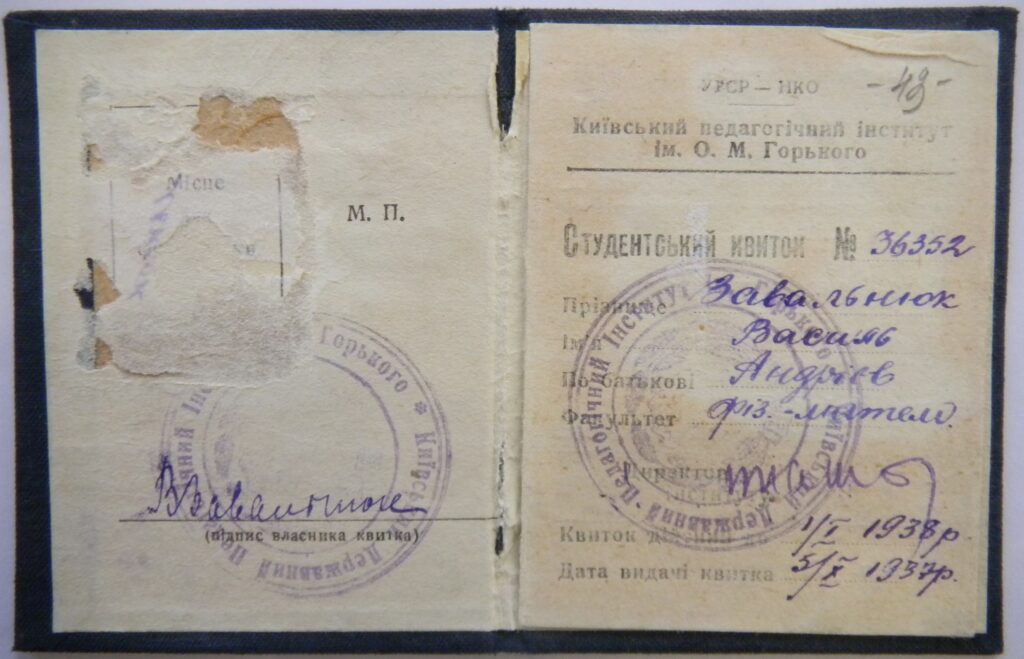 Місце
М. П.
ВЗавальнюк
(підпис власника квитка)
Горького * Київський Державний
УРСР — НКО
-49-
Київський педагогічний інститут
ім. О. М. Горького
Студентський квиток № 36352
Прізвище Завальнюк
Ім'я Василь
По батькові Андрієв
Факультет фіз.-матем.
Директор
інституту
Квиток дійсний до 1/I 1938р.
Дата видачі квитка 5/X 1937р.
Київський Державний Педагогічний Інститут ім. Горького